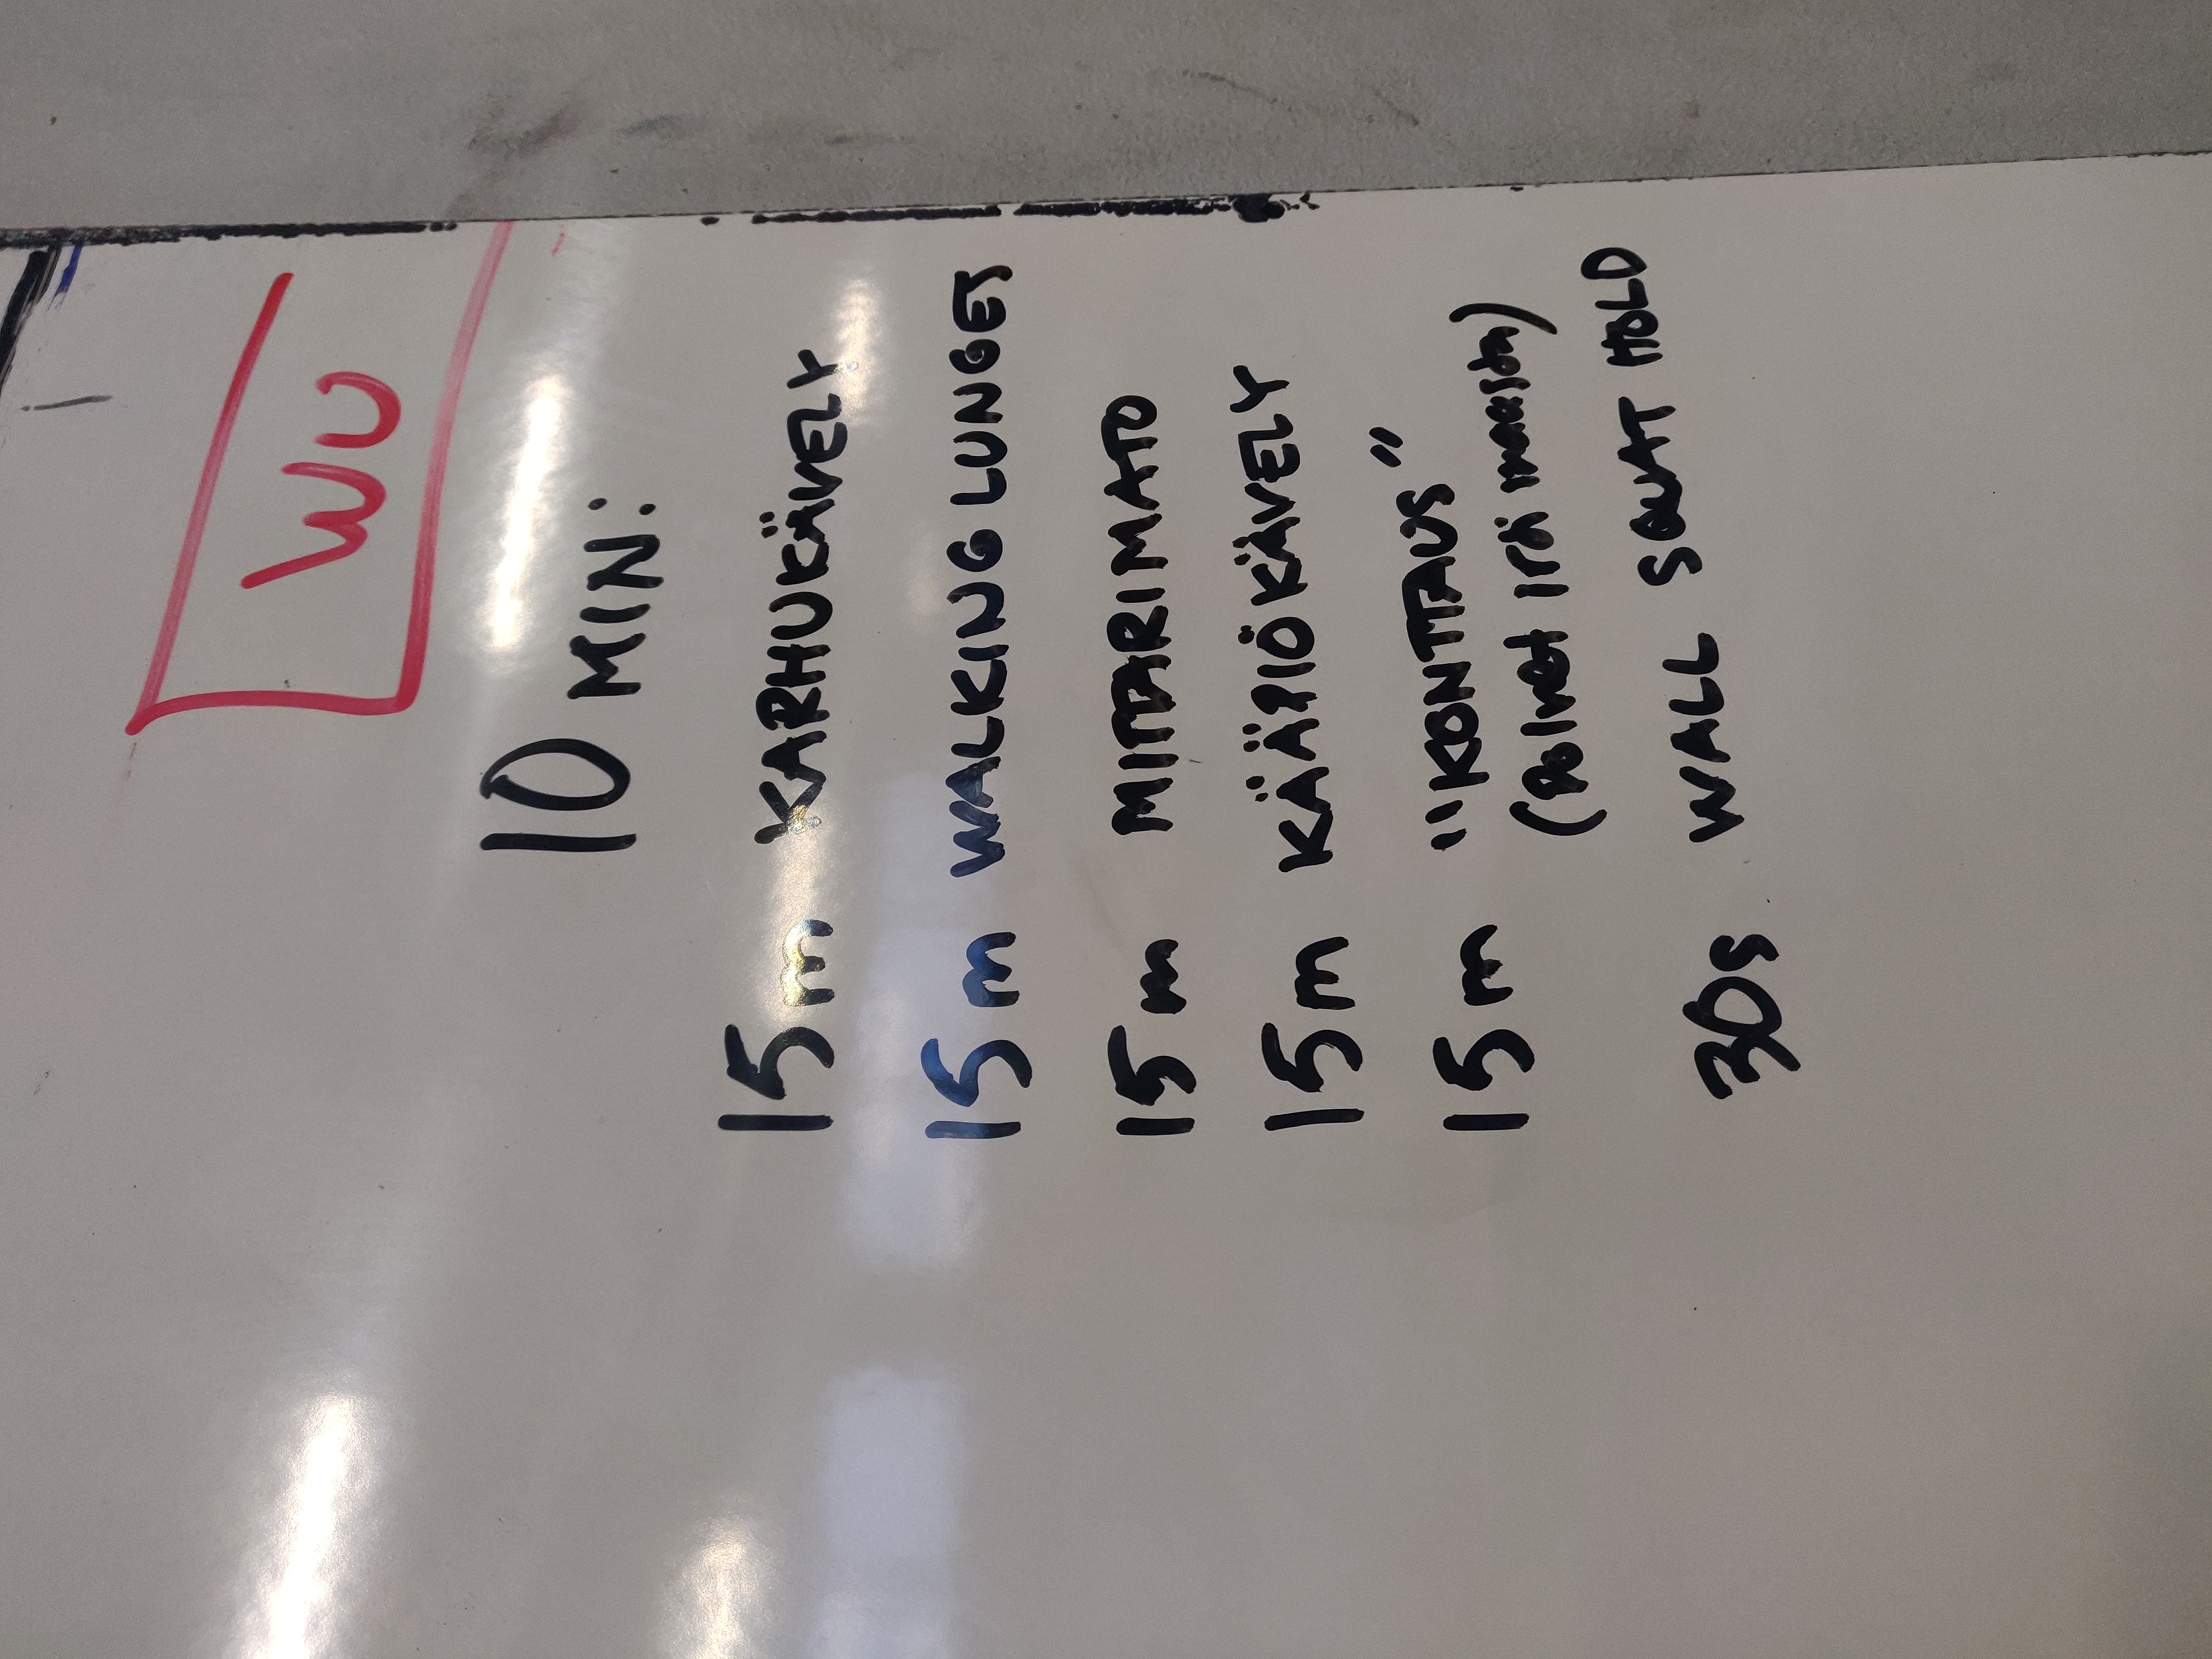 WU
10 MIN:
15 m KARHUKÄVELY
15 m WALKING LUNGES
15 m MITTARIMATO
15 m KÄÄPIÖKÄVELY
15 m "KONTTAUS"
(polvet irti maasta)
30s WALL SQUAT HOLD